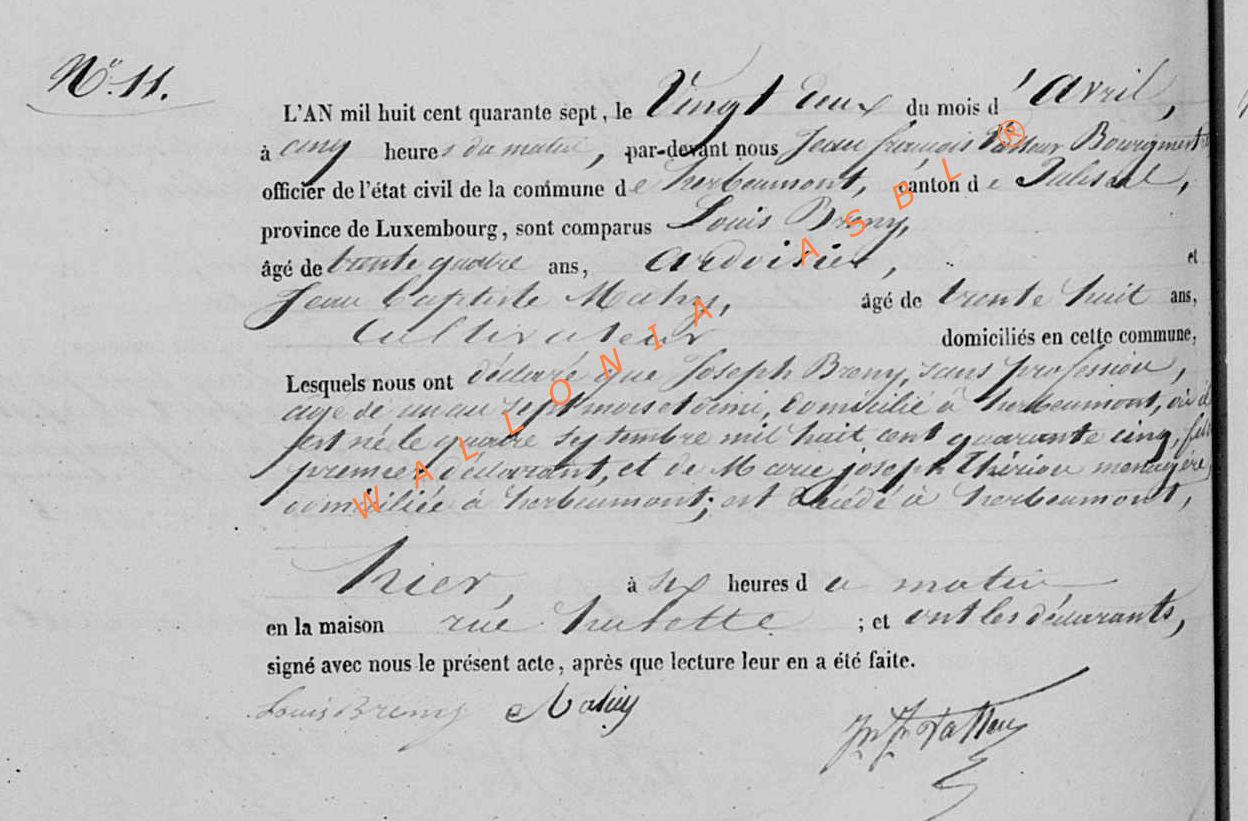 N° 11.
L'AN mil huit cent quarante sept, le Vingt deux du mois d'Avril,
à cinq heures du matin, par-devant nous Jean françois Bourgmestre
officier de l'état civil de la commune de herbeumont, canton de Paliseul,
province de Luxembourg, sont comparus Louis Bremy,
âgé de trente quatre ans, ardoisier, et
Jean Baptiste Mahy, âgé de trente huit ans,
Cultivateur domiciliés en cette commune,
Lesquels nous ont déclaré que Joseph Bremy, sans profession,
agé de un an sept mois et demi, domicilié à herbeumont, où il
est né le quatre septembre mil huit cent quarante cinq, fils
premier déclarant, et de Marie joseph Thériou menagère,
domiciliée à herbeumont; est décédé à herbeumont,
hier, à six heures du matin
en la maison rüe hulotte ; et ont les déclarants,
signé avec nous le présent acte, après que lecture leur en a été faite.
Louis Bremy Mahy
WALLONIA ASBL ®